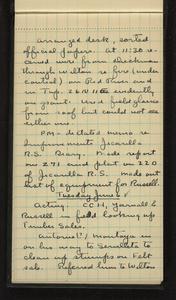 arranged desk, sorted
official papers. At 11:30 re-
ceived wire from Dickman
through Wilton re fire (under
control) on Red River and
in Twp. 26N 11E evidently
on grant. Used field glasses
from roof but could not see
either one.
PM - dictated memo re
Improvements Jicarilla
R.S. Diary. Made report
on 271 and plat on 220
of Jicarilla R.S. made out
list of equipment for Russell.
Tuesday June 1
Acting. CCH, Yarnall &
Russell in field looking up
Timber Sales.
Antonel Montoya in
on his way to Servilleta to
clean up stumps on Felt
sale. Referred him to Wilton